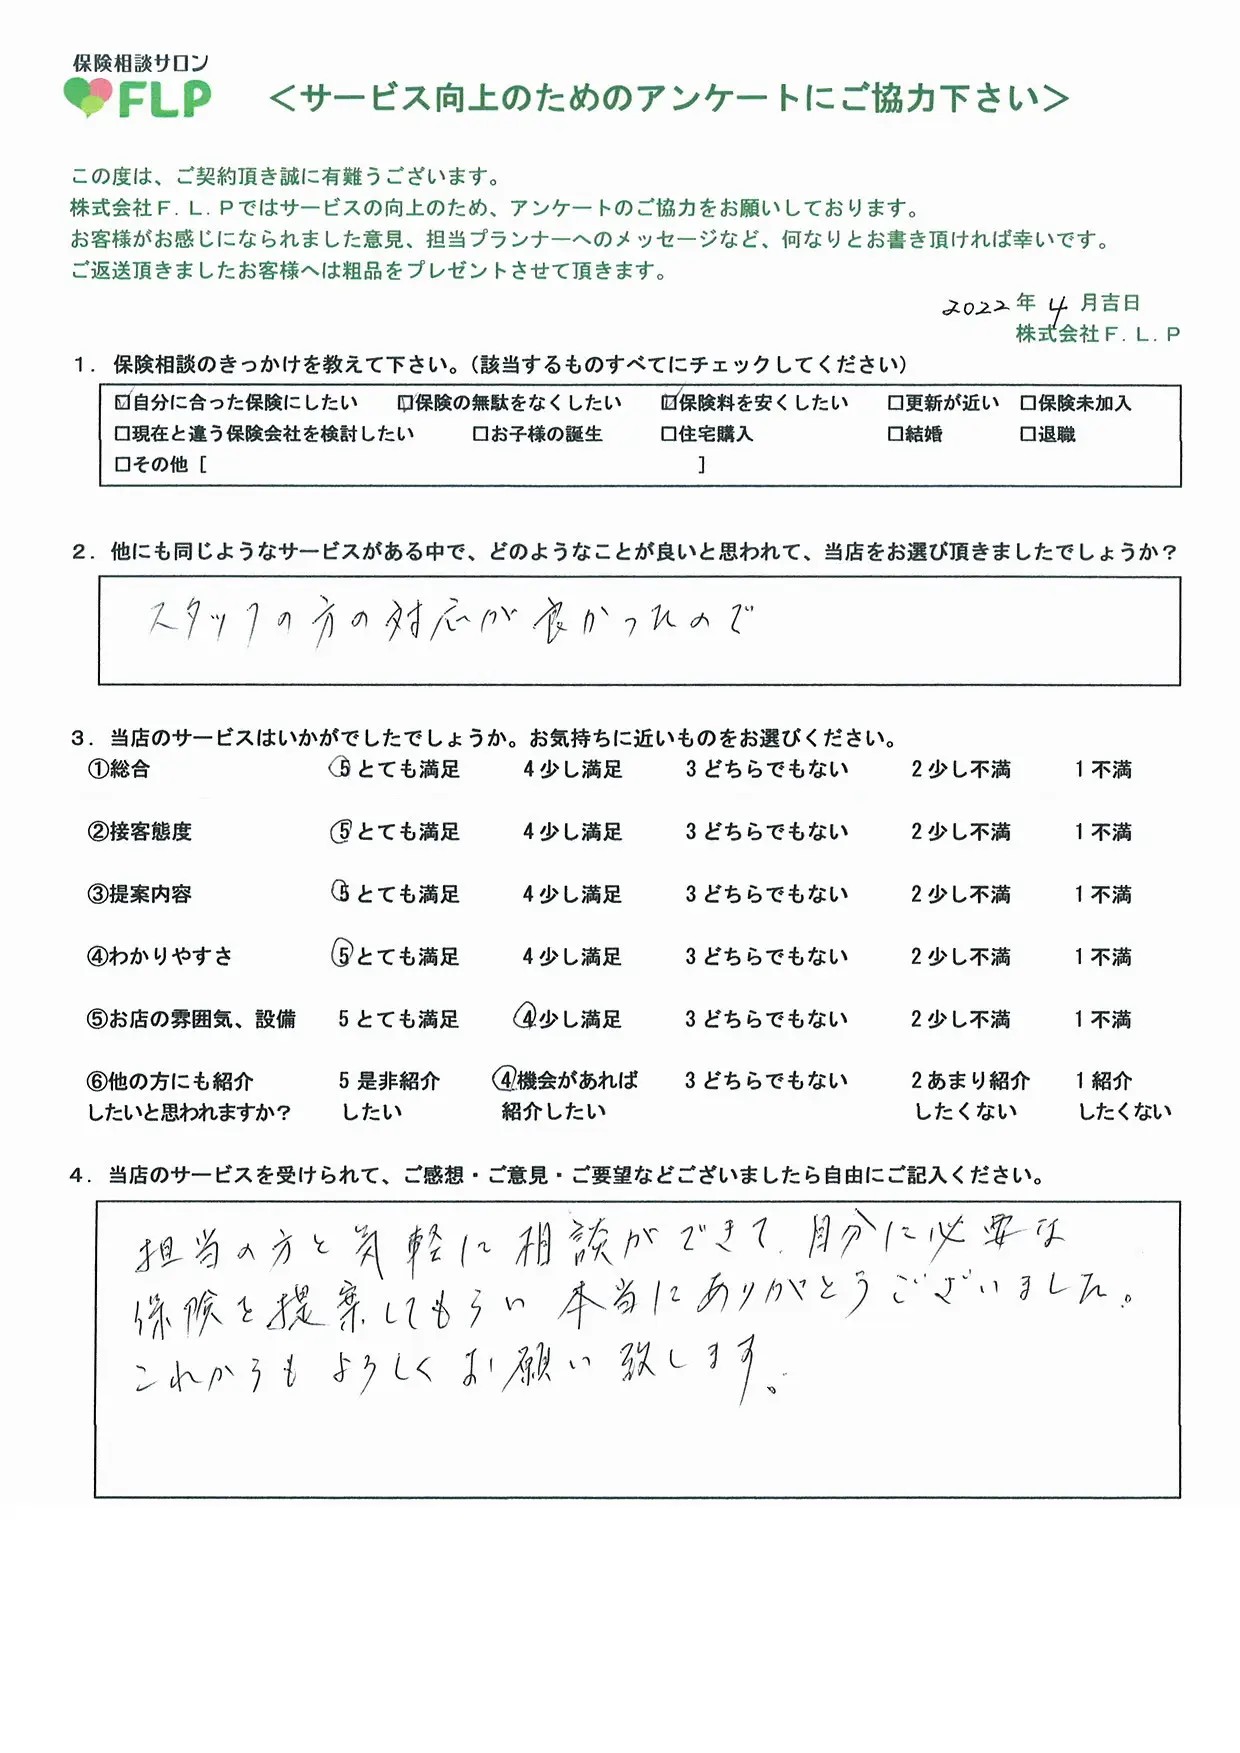 保険相談サロン
FLP
＜サービス向上のためのアンケートにご協力下さい＞
この度は、ご契約頂き誠に有難うございます。
株式会社Ｆ．Ｌ．Ｐではサービスの向上のため、アンケートのご協力をお願いしております。
お客様がお感じになられました意見、担当プランナーへのメッセージなど、何なりとお書き頂ければ幸いです。
ご返送頂きましたお客様へは粗品をプレゼントさせて頂きます。
2022年 4月吉日
株式会社Ｆ．Ｌ．Ｐ
１．保険相談のきっかけを教えて下さい。（該当するものすべてにチェックしてください）
☑自分に合った保険にしたい ☑保険の無駄をなくしたい ☑保険料を安くしたい □更新が近い □保険未加入
□現在と違う保険会社を検討したい □お子様の誕生 □住宅購入 □結婚 □退職
□その他［ ］
２．他にも同じようなサービスがある中で、どのようなことが良いと思われて、当店をお選び頂きましたでしょうか？
スタッフの方の対応が良かったので
３．当店のサービスはいかがでしたでしょうか。お気持ちに近いものをお選びください。
①総合 5 とても満足 4 少し満足 3 どちらでもない 2 少し不満 1 不満
②接客態度 5 とても満足 4 少し満足 3 どちらでもない 2 少し不満 1 不満
③提案内容 5 とても満足 4 少し満足 3 どちらでもない 2 少し不満 1 不満
④わかりやすさ 5 とても満足 4 少し満足 3 どちらでもない 2 少し不満 1 不満
⑤お店の雰囲気、設備 5 とても満足 4 少し満足 3 どちらでもない 2 少し不満 1 不満
⑥他の方にも紹介 5 是非紹介 4 機会があれば 3 どちらでもない 2 あまり紹介 1 紹介
したいと思われますか？ したい 紹介したい したくない したくない
４．当店のサービスを受けられて、ご感想・ご意見・ご要望などございましたら自由にご記入ください。
担当の方と気軽に相談ができて、自分に必要な
保険を提案してもらい本当にありがとうございました。
これからもよろしくお願い致します。